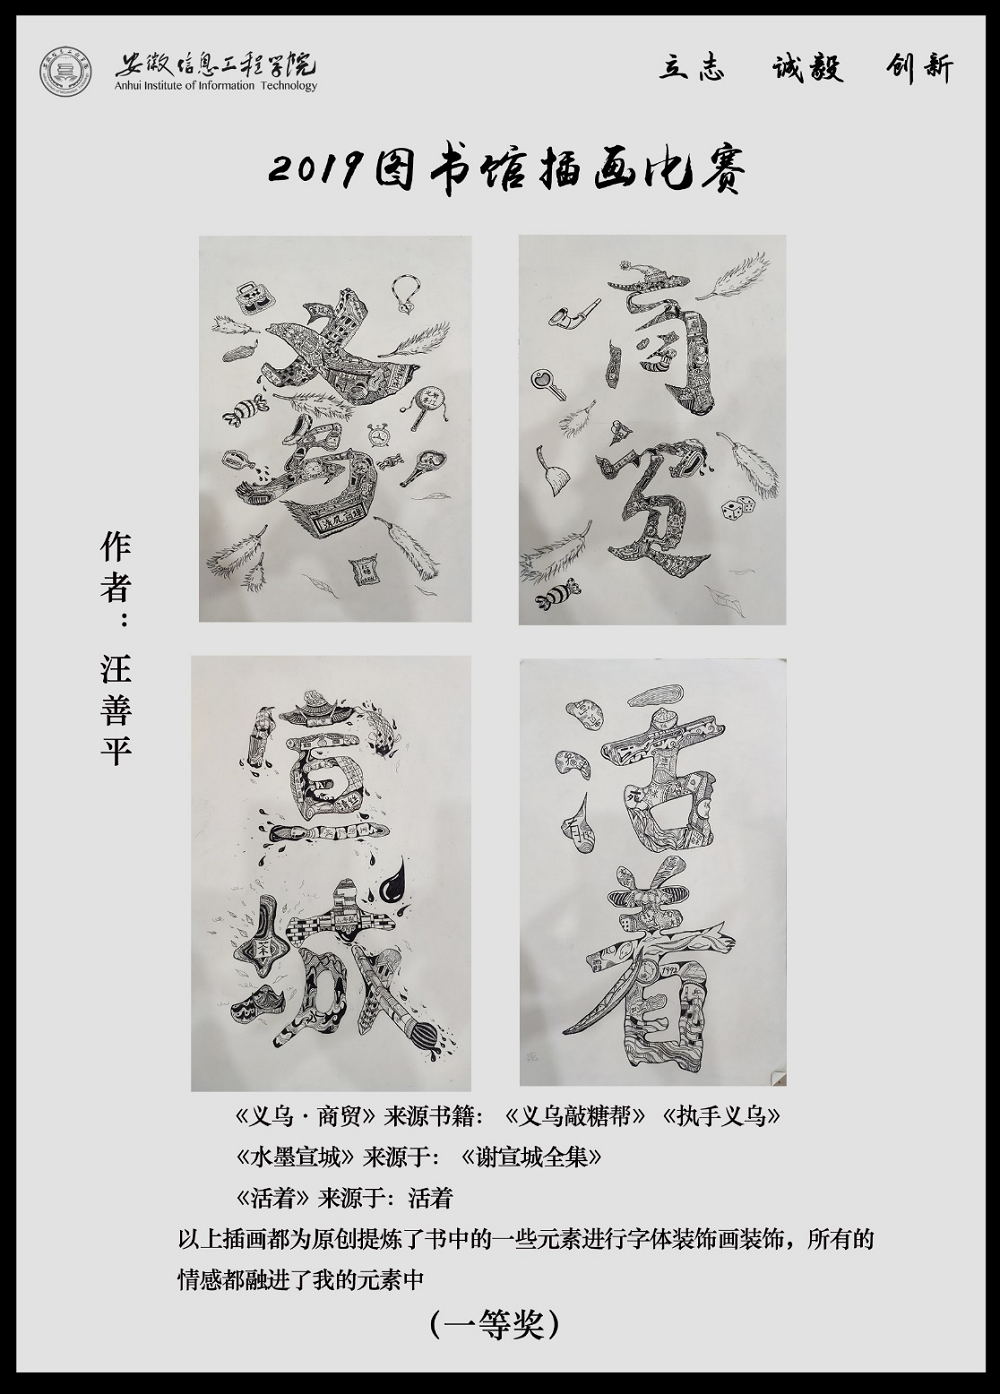 安徽信息工程学院
Anhui Institute of Information Technology
立志 诚毅 创新
2019图书馆插画比赛
作者：汪善平
义乌
商贸
宣城
茶
活着
1992
《义乌·商贸》来源书籍：《义乌敲糖帮》《执手义乌》
《水墨宣城》来源于：《谢宣城全集》
《活着》来源于：活着
以上插画都为原创提炼了书中的一些元素进行字体装饰画装饰，所有的
情感都融进了我的元素中
（一等奖）